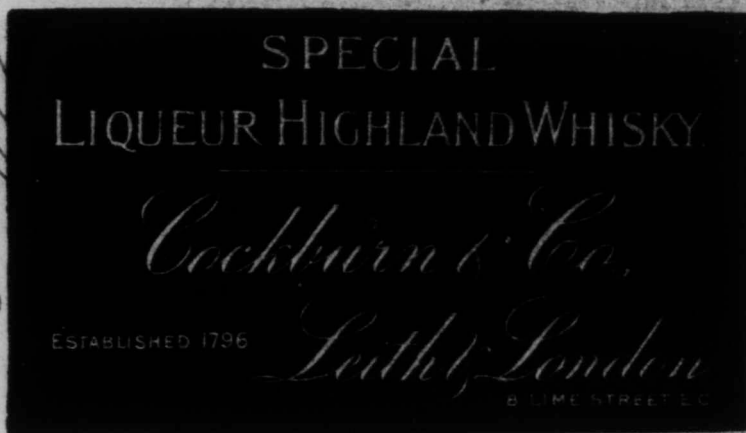 SPECIAL
LIQUEUR HIGHLAND WHISKY.
Cockburn & Co,
ESTABLISHED 1796 Leith & London
8 LIME STREET E.C